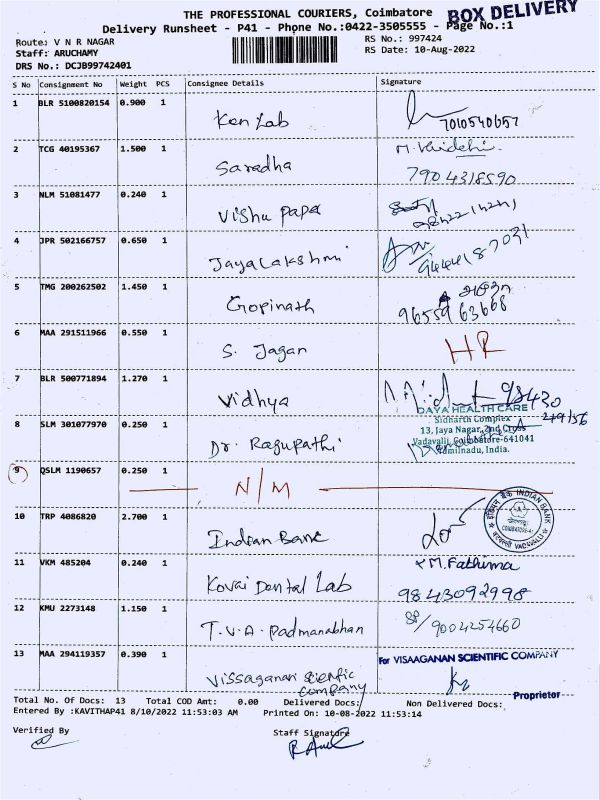 THE PROFESSIONAL COURIERS, Coimbatore BOX DELIVERY
Delivery Runsheet - P41 - Phone No.:0422-3505555 - Page No.:1
Route: V N R NAGAR RS No.: 997424
Staff: ARUCHAMY RS Date: 10-Aug-2022
DRS No.: DCJB99742401
S No Consignment No Weight PCS Consignee Details Signature
1 BLR 5100820154 0.900 1
Ken Lab 7010540657
2 TCG 40195367 1.500 1 M. Vaidehi
Saradha 7904318590
3 NLM 51081477 0.240 1
Vishu Papa
4 JPR 502166757 0.650 1
Jayalakshmi
5 TMG 200262502 1.450 1
Gopinath 96559 63668
6 MAA 291511966 0.550 1
S. Jagan HR
7 BLR 500771894 1.270 1
Vidhya 98430
DAYA HEALTH CARE
8 SLM 301077970 0.250 1 Sidharth Complex
13, Jaya Nagar, 2nd Cross
Dr. Ragupathi Vadavalli, Coimbatore-641041
Tamilnadu, India.
9 QSLM 1190657 0.250 1
N/M
10 TRP 4086820 2.700 1 INDIAN BANK
Indian Bank
11 VKM 485204 0.240 1 M. Fathima
Kovai Dental Lab 9843092998
12 KMU 2273148 1.150 1
T.V.A. Padmanabhan 9004254660
13 MAA 294119357 0.390 1 For VISAAGANAN SCIENTIFIC COMPANY
Vissaganan Scienfic
Company Proprietor
Total No. Of Docs: 13 Total COD Amt: 0.00 Delivered Docs: Non Delivered Docs:
Entered By :KAVITHAP41 8/10/2022 11:53:03 AM Printed On: 10-08-2022 11:53:14
Verified By Staff Signature